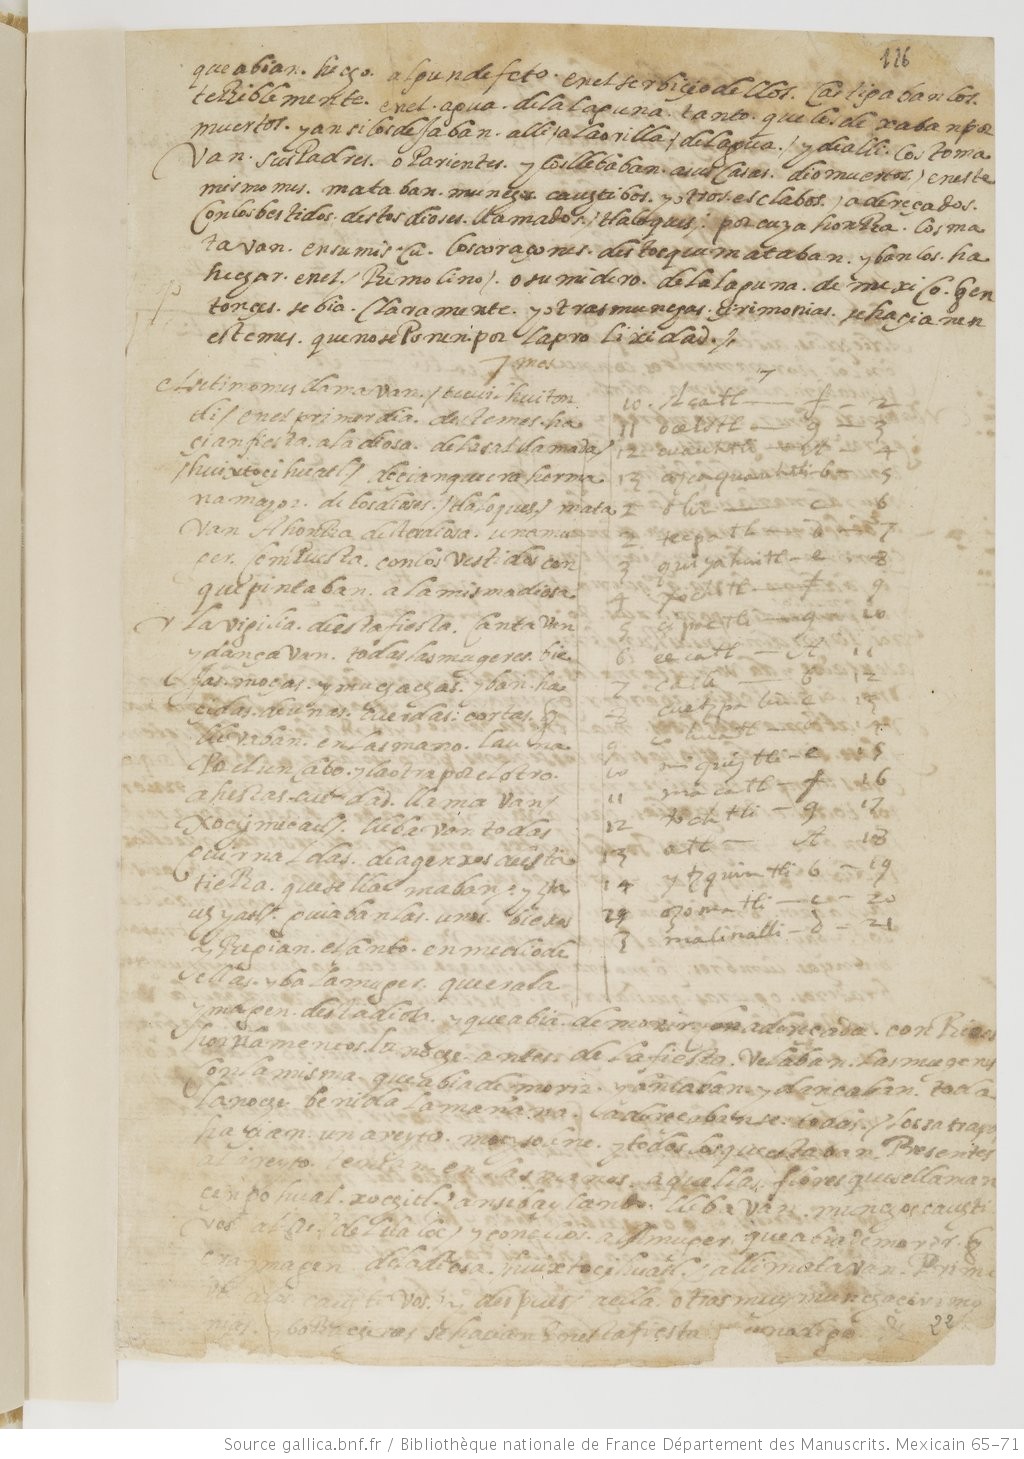 126
que abian. hecho. algun defeto. en el serbiçio dellos. Castigabanlos
teRiblemente. en el. agua. dela laguna. tanto. que los de xaban por
muertos. y ansi los dejaban. alli a la orilla / del agua. / y de alli. los toma
van. sus Padres. o Parientes. y los llebaban. a sus Casas. medio muertos / en este
mismo mes. mataban. munchos cauptibos. y otros esclabos. / adereçados.
Con los bestidos. destos dioses. llamados / tlaloques / por cuya honRa. los ma
tavan. en su mis cu. los coraçones. destos que mataban. yban los. ha
hechar. en el / Remolino / o sumidero. de la laguna. de mexico. q en
tonçes. se bia. Claramente. y otras munchas. çirimonias. se haçian en
este mes. que no se Ponen por la prolixidad. /
7 mes
el setimo mes llamavan / tecuilhuiton
tli / en el primer dia. deste mes. ha
çian fiesta. a la diosa. de la sal llamada /
/ huixtoçihuatl / deçian que era herma
na mayor. de los dioses. / tlaloques / mata
van A honRa desta diosa. una mu
ger. ConPuesta. con los vestidos con
que pintaban. a la misma diosa
la vigilia. desta fiesta. Cantavan
y dançavan. todas las mugeres. bie
jas. moças. y muchachas. yban ha
çidas. de unas. cuerdas. cortas. q
llebaban. en las mano. la una
Por el un Cabo. y la otra por el otro.
a hestas cuerdas. llamavan /
xochimecatl / llebavan todas
guirnaldas. de agenxos desta
tieRa. que se llamaban. yzta
uhyatl. guiabanlas. unos biexos
y Regian. el canto. en medio de
ellas. yba la muger. que era la
ymagen. desta diosa. y que abia. de morir. adereçada. con Ricos
hornamentos. la noche. antes. de la fiesta. velaban. las mugeres
con la misma. que abia de morir. y cantavan. y dançaban. toda
la noche. benida la mañana. adereçabanse. todos. / los satrapas
haçian un areyto. muy solene. y todos los que estavan Presentes
al areyto. tenian. en las manos. aquellas flores que se llaman
çenpohual. xochitl. / ansi baylando. llebavan. munchos cauti
vos al cu. de tlaloc / y con ellos. a la muger. que abia de morir. q
era ymagen. de la diosa. huixtoçihuatl / alli matavan. Prime
ro a los cautivos. / y despues a ella. otras muy munchas çirimo
nias. y boRacheras se haçian en esta fiesta
7
10. Acatl — f — 2
11 oçelotl — g — 3
12 cuauhtli — A — 4
13 cozcaquauhtli — b — 5
1 olin — c — 6
2 tecpatl — d — 7
3 quiyahuitl — e — 8
4 xochitl — f — 9
5 cipactli — g — 10
6 eecatl — A — 11
7 calli — b — 12
8 cuetzpalin — c — 13
9 cohuatl — d — 14
10 miquiztli — e — 15
11 maçatl — f — 16
12 tochtli — g — 17
13 atl — A — 18
14 ytzquintli b — 19
2 oçomatli — c — 20
3 malinalli — d — 21
22